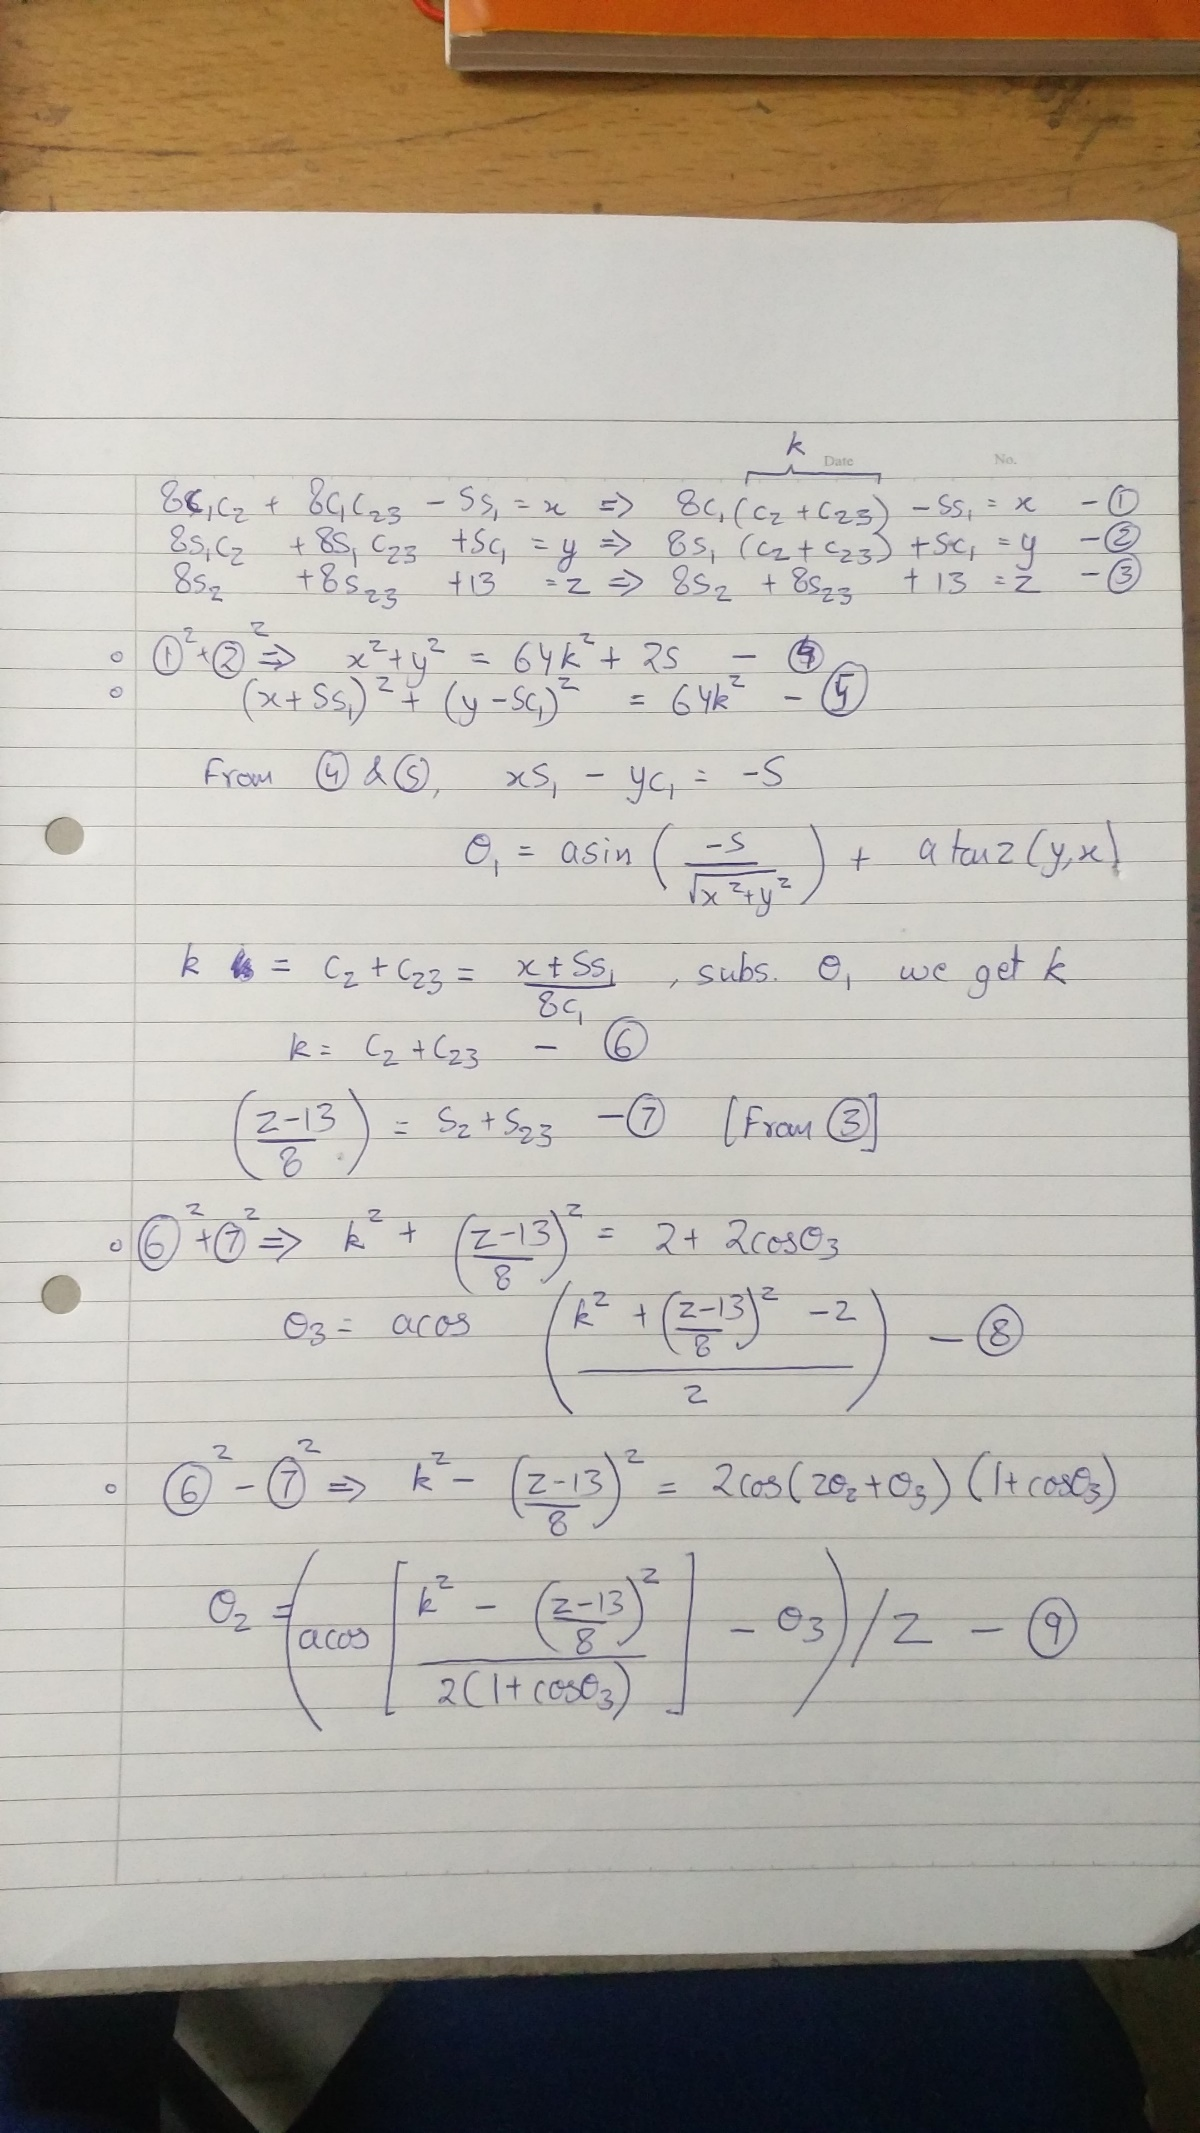 k
Date No.
8c₁c₂ + 8c₁c₂₃ - 5s₁ = x ⇒ 8c₁(c₂ + c₂₃) - 5s₁ = x - ①
8s₁c₂ + 8s₁c₂₃ + 5c₁ = y ⇒ 8s₁(c₂ + c₂₃) + 5c₁ = y - ②
8s₂ + 8s₂₃ + 13 = z ⇒ 8s₂ + 8s₂₃ + 13 = z - ③
∘ ①² + ②² ⇒ x² + y² = 64k² + 25 - ④
∘ (x + 5s₁)² + (y - 5c₁)² = 64k² - ⑤
From ④ & ⑤, xs₁ - yc₁ = -5
θ₁ = asin(-5/√(x² + y²)) + atan2(y,x)
k = c₂ + c₂₃ = (x + 5s₁)/(8c₁), subs. θ₁ we get k
k = c₂ + c₂₃ - ⑥
((z-13)/8) = s₂ + s₂₃ - ⑦ [From ③]
∘ ⑥² + ⑦² ⇒ k² + ((z-13)/8)² = 2 + 2cosθ₃
θ₃ = acos((k² + ((z-13)/8)² - 2)/2) - ⑧
∘ ⑥² - ⑦² ⇒ k² - ((z-13)/8)² = 2cos(2θ₂ + θ₃)(1 + cosθ₃)
θ₂ = (acos[(k² - ((z-13)/8)²)/(2(1 + cosθ₃))] - θ₃)/2 - ⑨